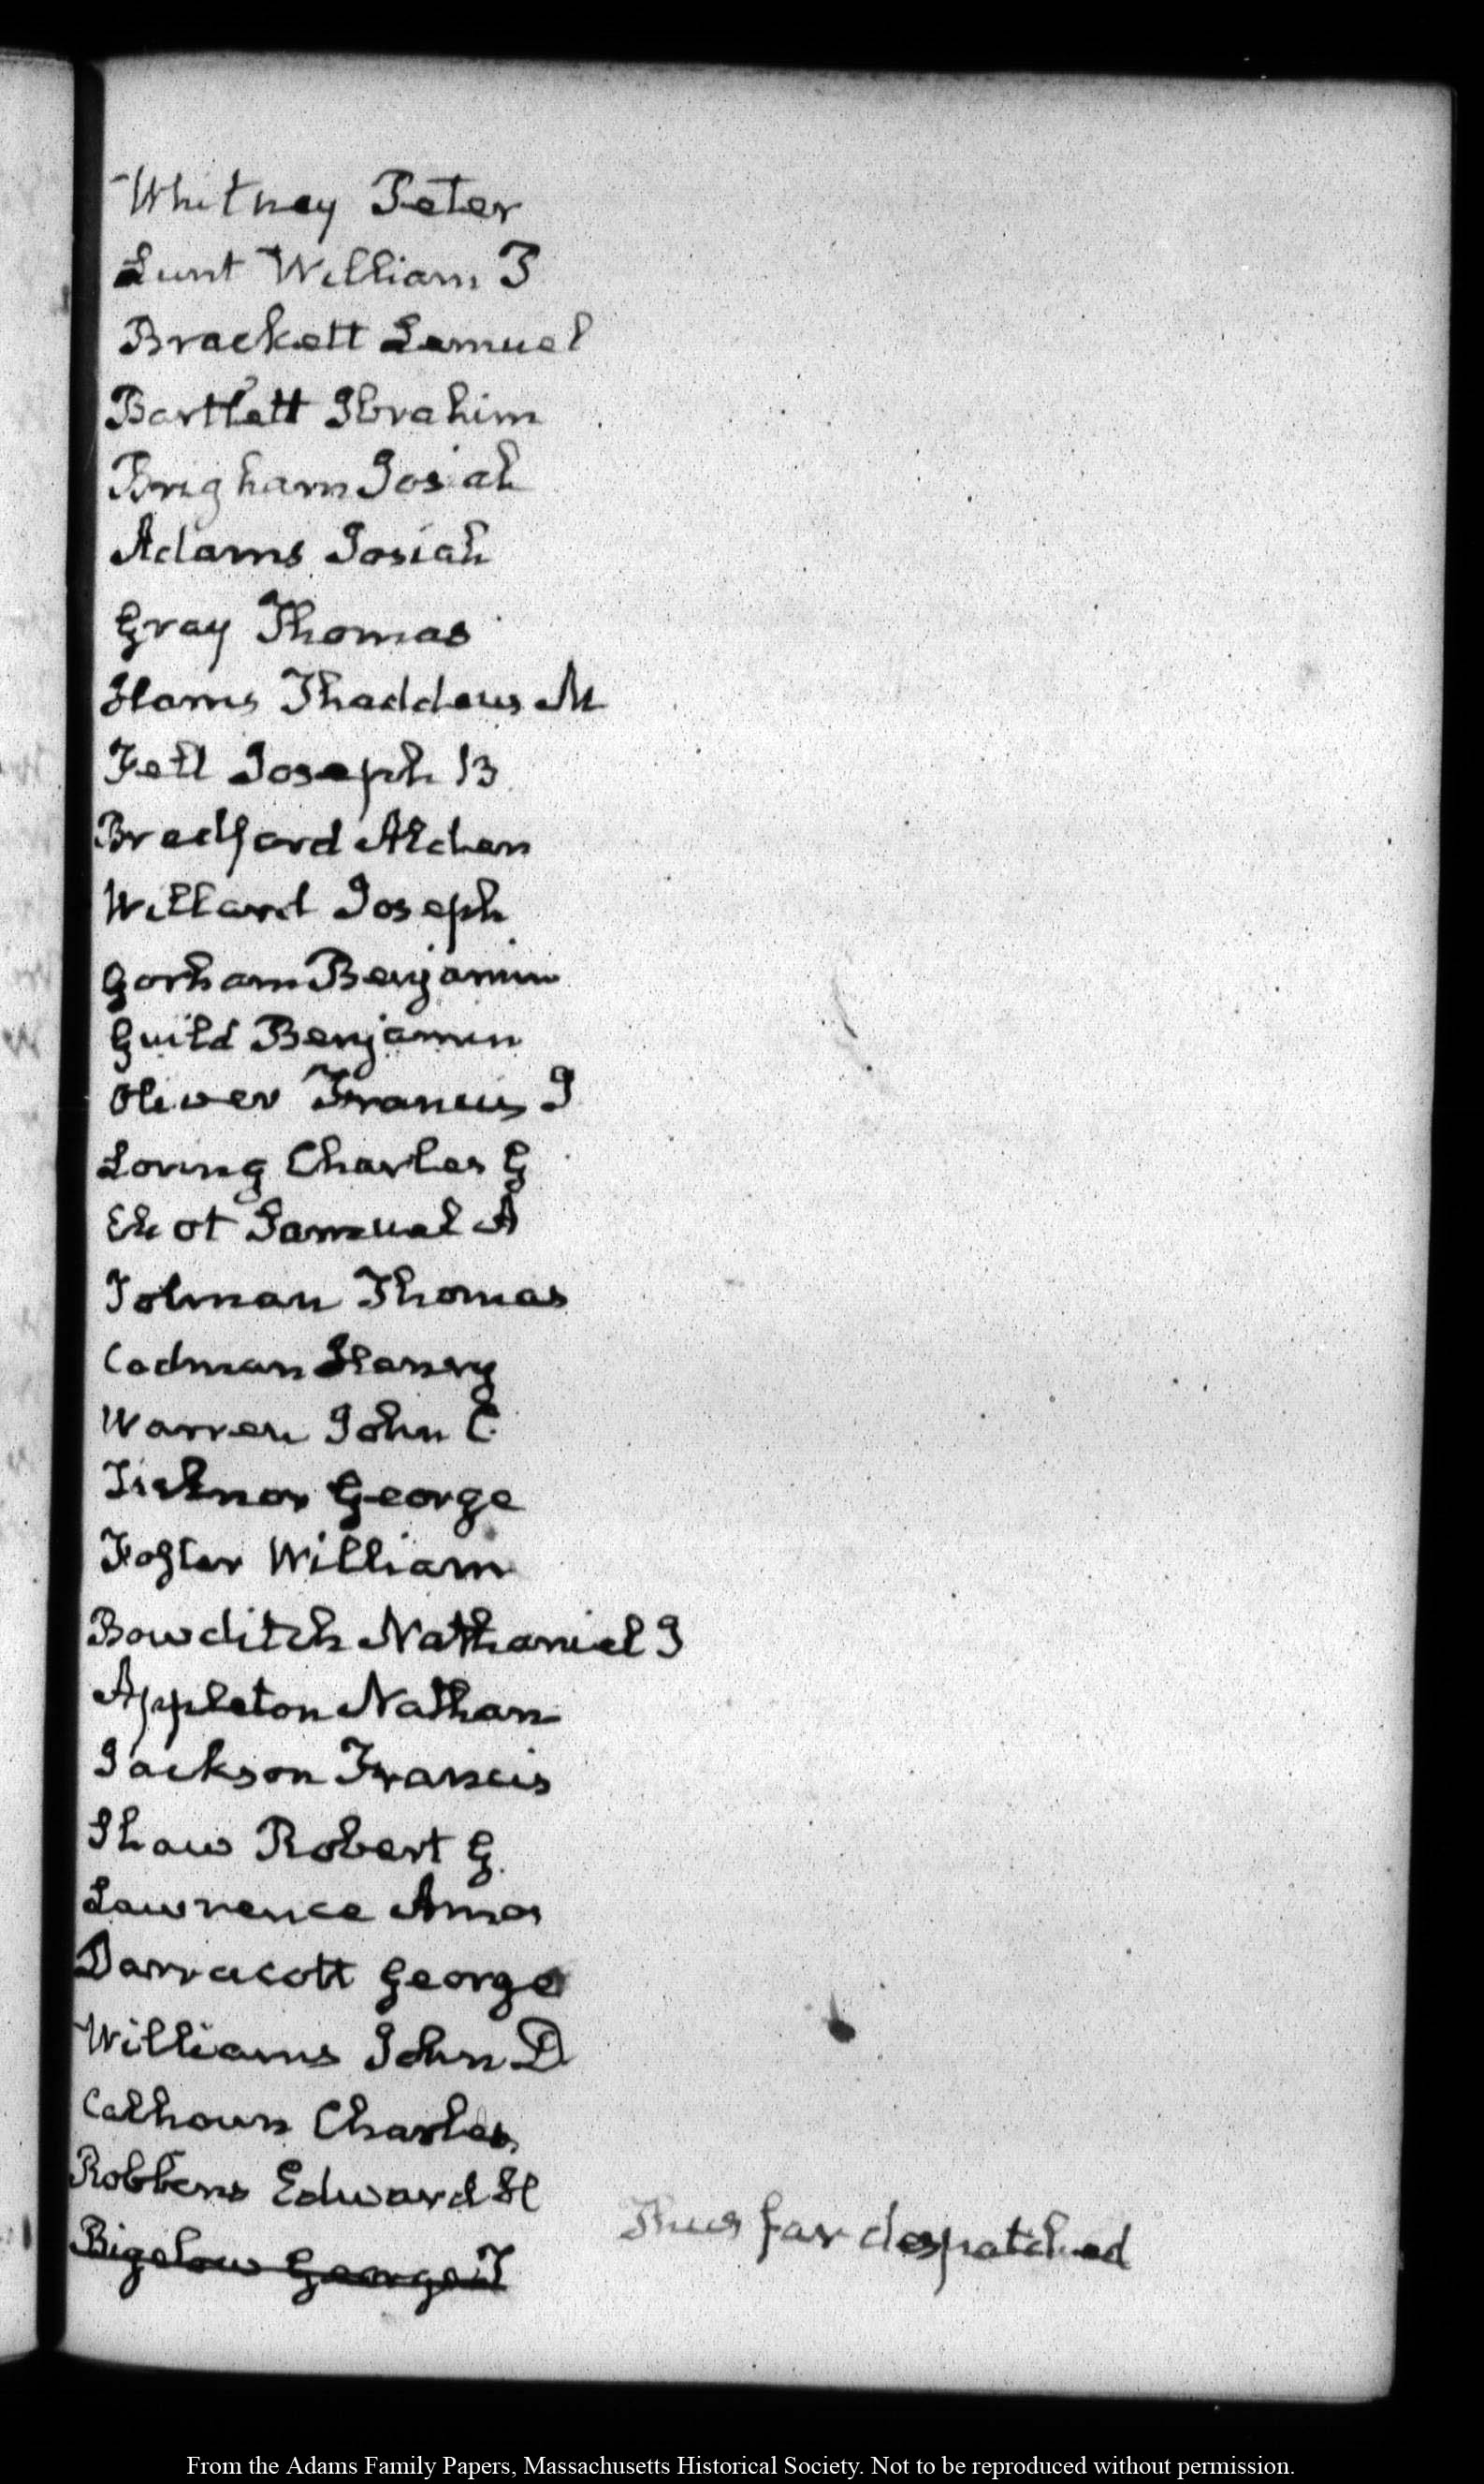 Whitney Peter
Lunt William P
Brackett Lemuel
Bartlett Ibrahim
Brigham Josiah
Adams Josiah
Gray Thomas
Harris Thaddeus M
Felt Joseph B
Bradford Alden
Willard Joseph
Gorham Benjamin
Guild Benjamin
Oliver Francis J
Loring Charles G
Eliot Samuel A
Tolman Thomas
Codman Henry
Warren John C
Ticknor George
Foster William
Bowditch Nathaniel I
Appleton Nathan
Jackson Francis
Shaw Robert G.
Lawrence Amos
Darracott George
Williams John D
Calhoun Charles
Robbins Edward H
Bigelow George T
Thus far despatched
From the Adams Family Papers, Massachusetts Historical Society. Not to be reproduced without permission.